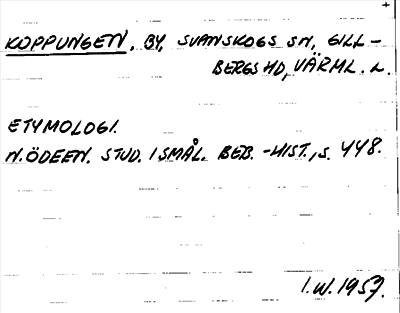 KOPPUNGEN, BY, SVANSKOGS SN, GILL-
BERGS HD, VÄRML. L.
ETYMOLOGI.
N. ÖDEEN. STUD. I SMÅL. BEB.-HIST., S. 448.
I.W. 1957.